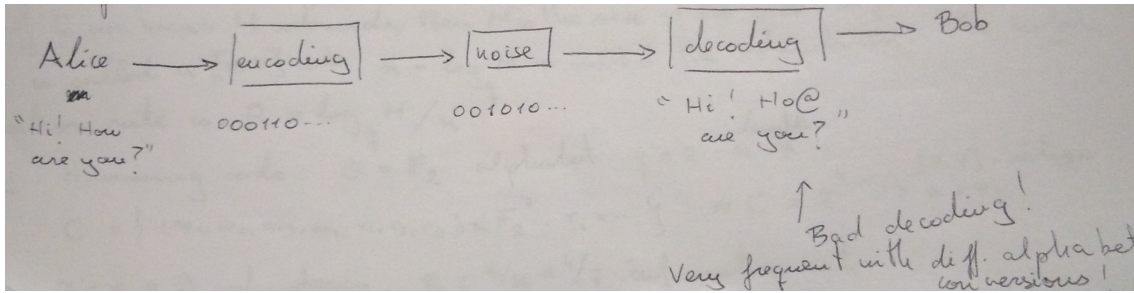 Alice → encoding → noise → decoding → Bob
"Hi! How
are you?"
000110...
001010...
"Hi! Ho@
are you?"
↑
Bad decoding!
Very frequent with diff. alphabet
conversions!